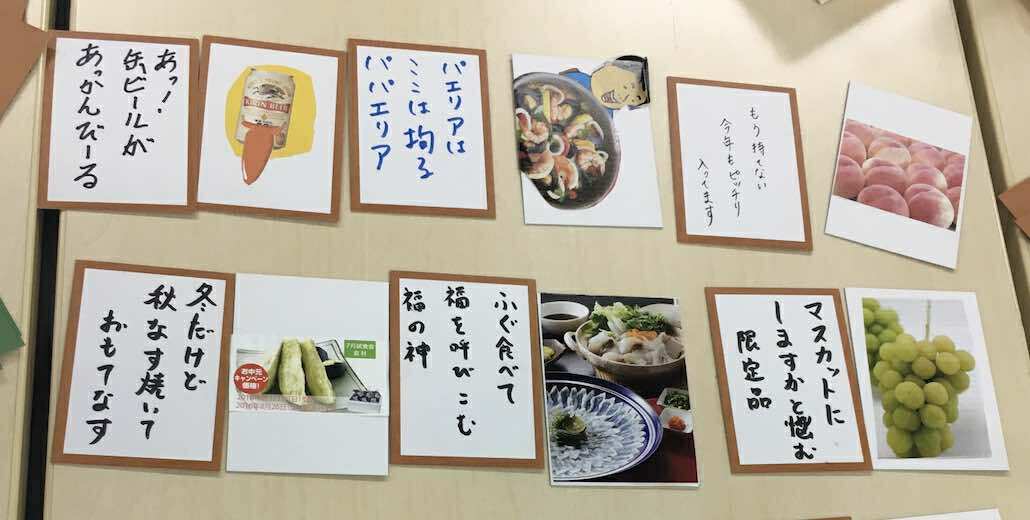 あっ!
缶ビールが
あっかんびーる
KIRIN BEER
パエリアは
ここは拘る
パパエリア
もう持てない
今年もピッチリ
入ってます
冬だけど
秋なす焼いて
おもてなす
7月試食会
お中元
キャンペーン
価格!
ふぐ食べて
福を呼びこむ
福の神
マスカットに
しますかと悩む
限定品